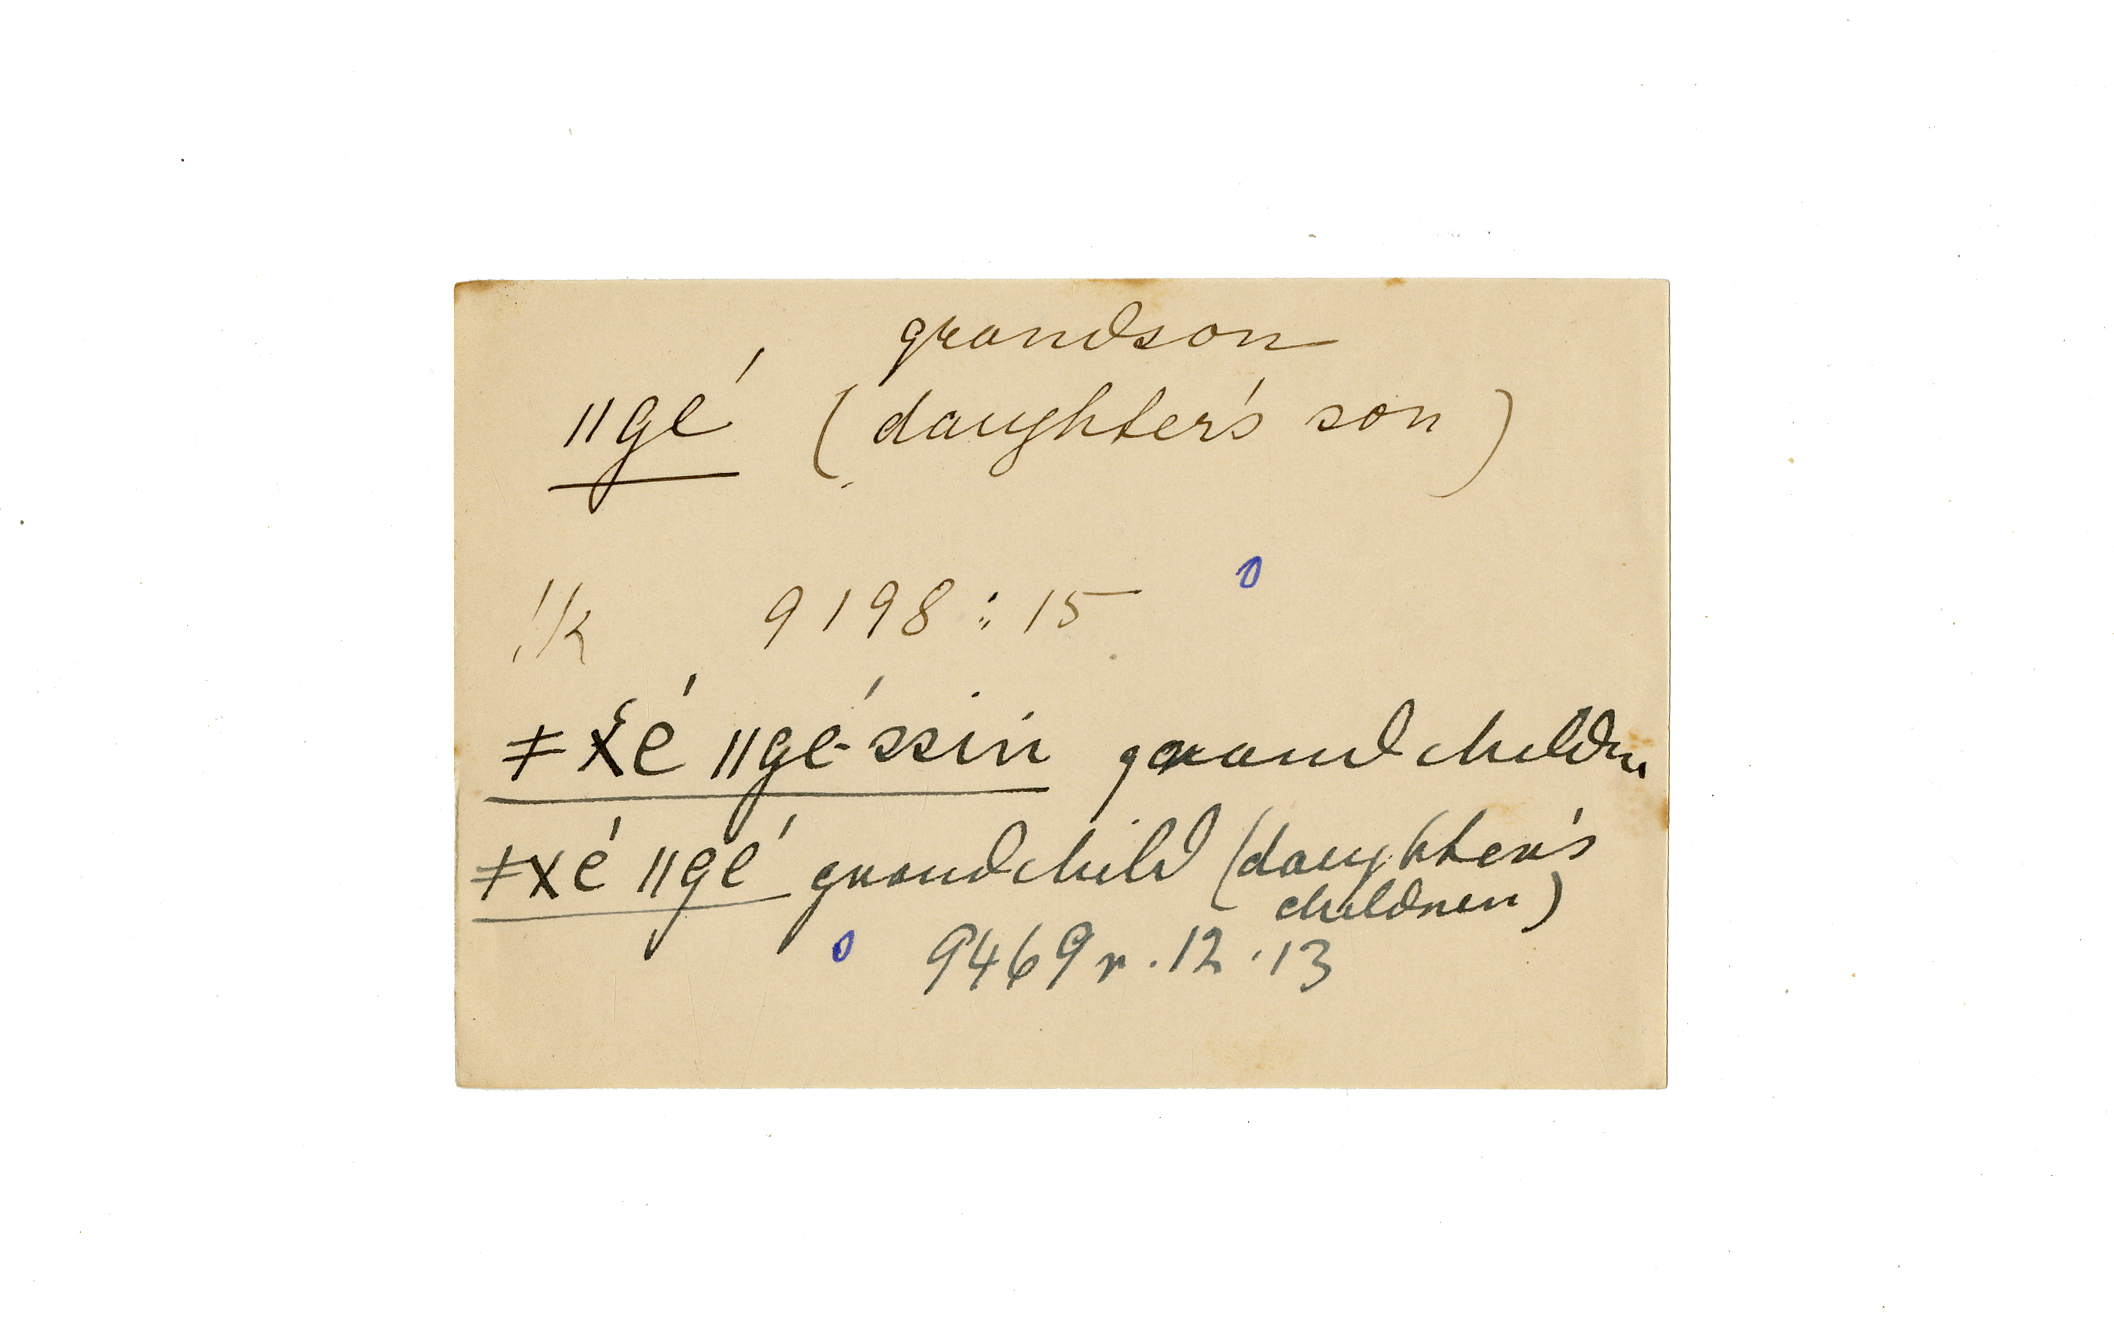 grandson
ǁgé (daughter's son)
!k 9198 : 15 0
ǂχé ǁgé-ssin grandchildren
ǂχé ǁgé grandchild (daughter's
children)
0 9469 r. 12. 13